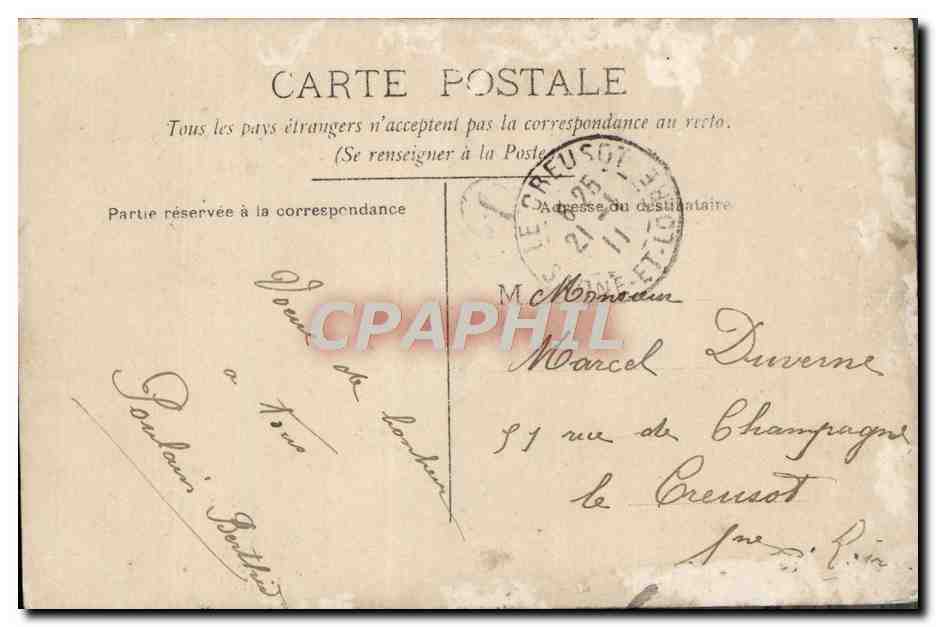 CARTE POSTALE
Tous les pays étrangers n'acceptent pas la correspondance au recto.
(Se renseigner à la Poste
Partie réservée à la correspondance
Adresse du destinataire
LE CREUSOT
SAONE-ET-LOIRE
6 25
21 - 1
11
Voeux de bonheur
a tous
Poulain Berthe
M Monsieur
Marcel Duverne
51 rue de Champagne
le Creusot
Sne
CPAPHIL